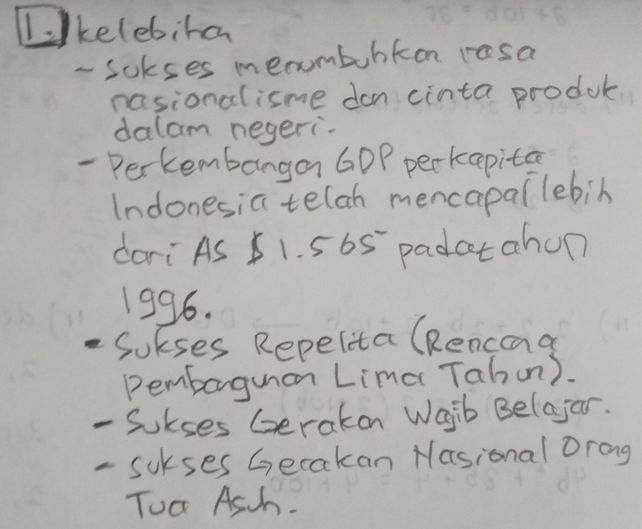 1. kelebihan
- Sukses menumbuhkan rasa
nasionalisme dan cinta produk
dalam negeri.
- Perkembangan GDP perkapita
Indonesia telah mencapai lebih
dari AS $ 1.565 pada tahun
1996.
- Sukses Repelita (Rencana
Pembangunan Lima Tahun).
- Sukses Gerakan Wajib Belajar.
- sukses Gerakan Nasional Orang
Tua Asuh.